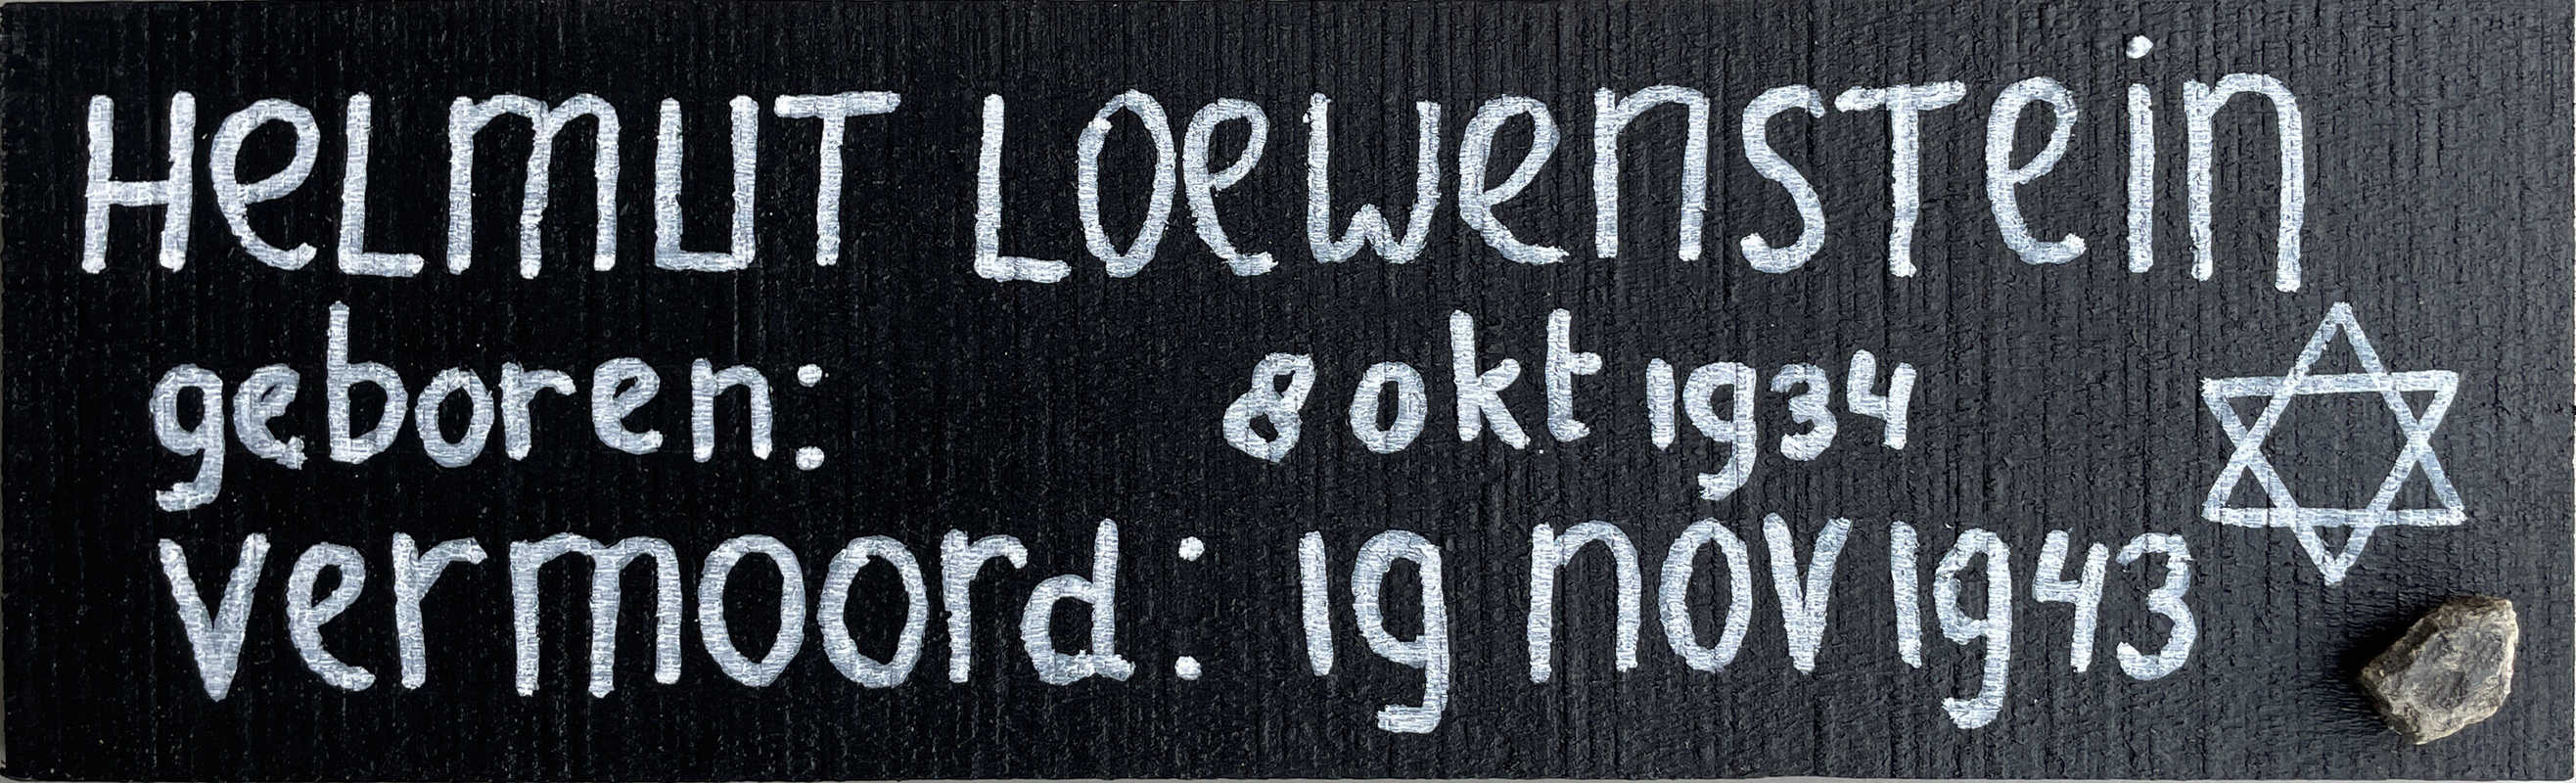 HeLmUT LOewenSTein
geboren: 8 okt 1934
vermoord: 19 nov 1943